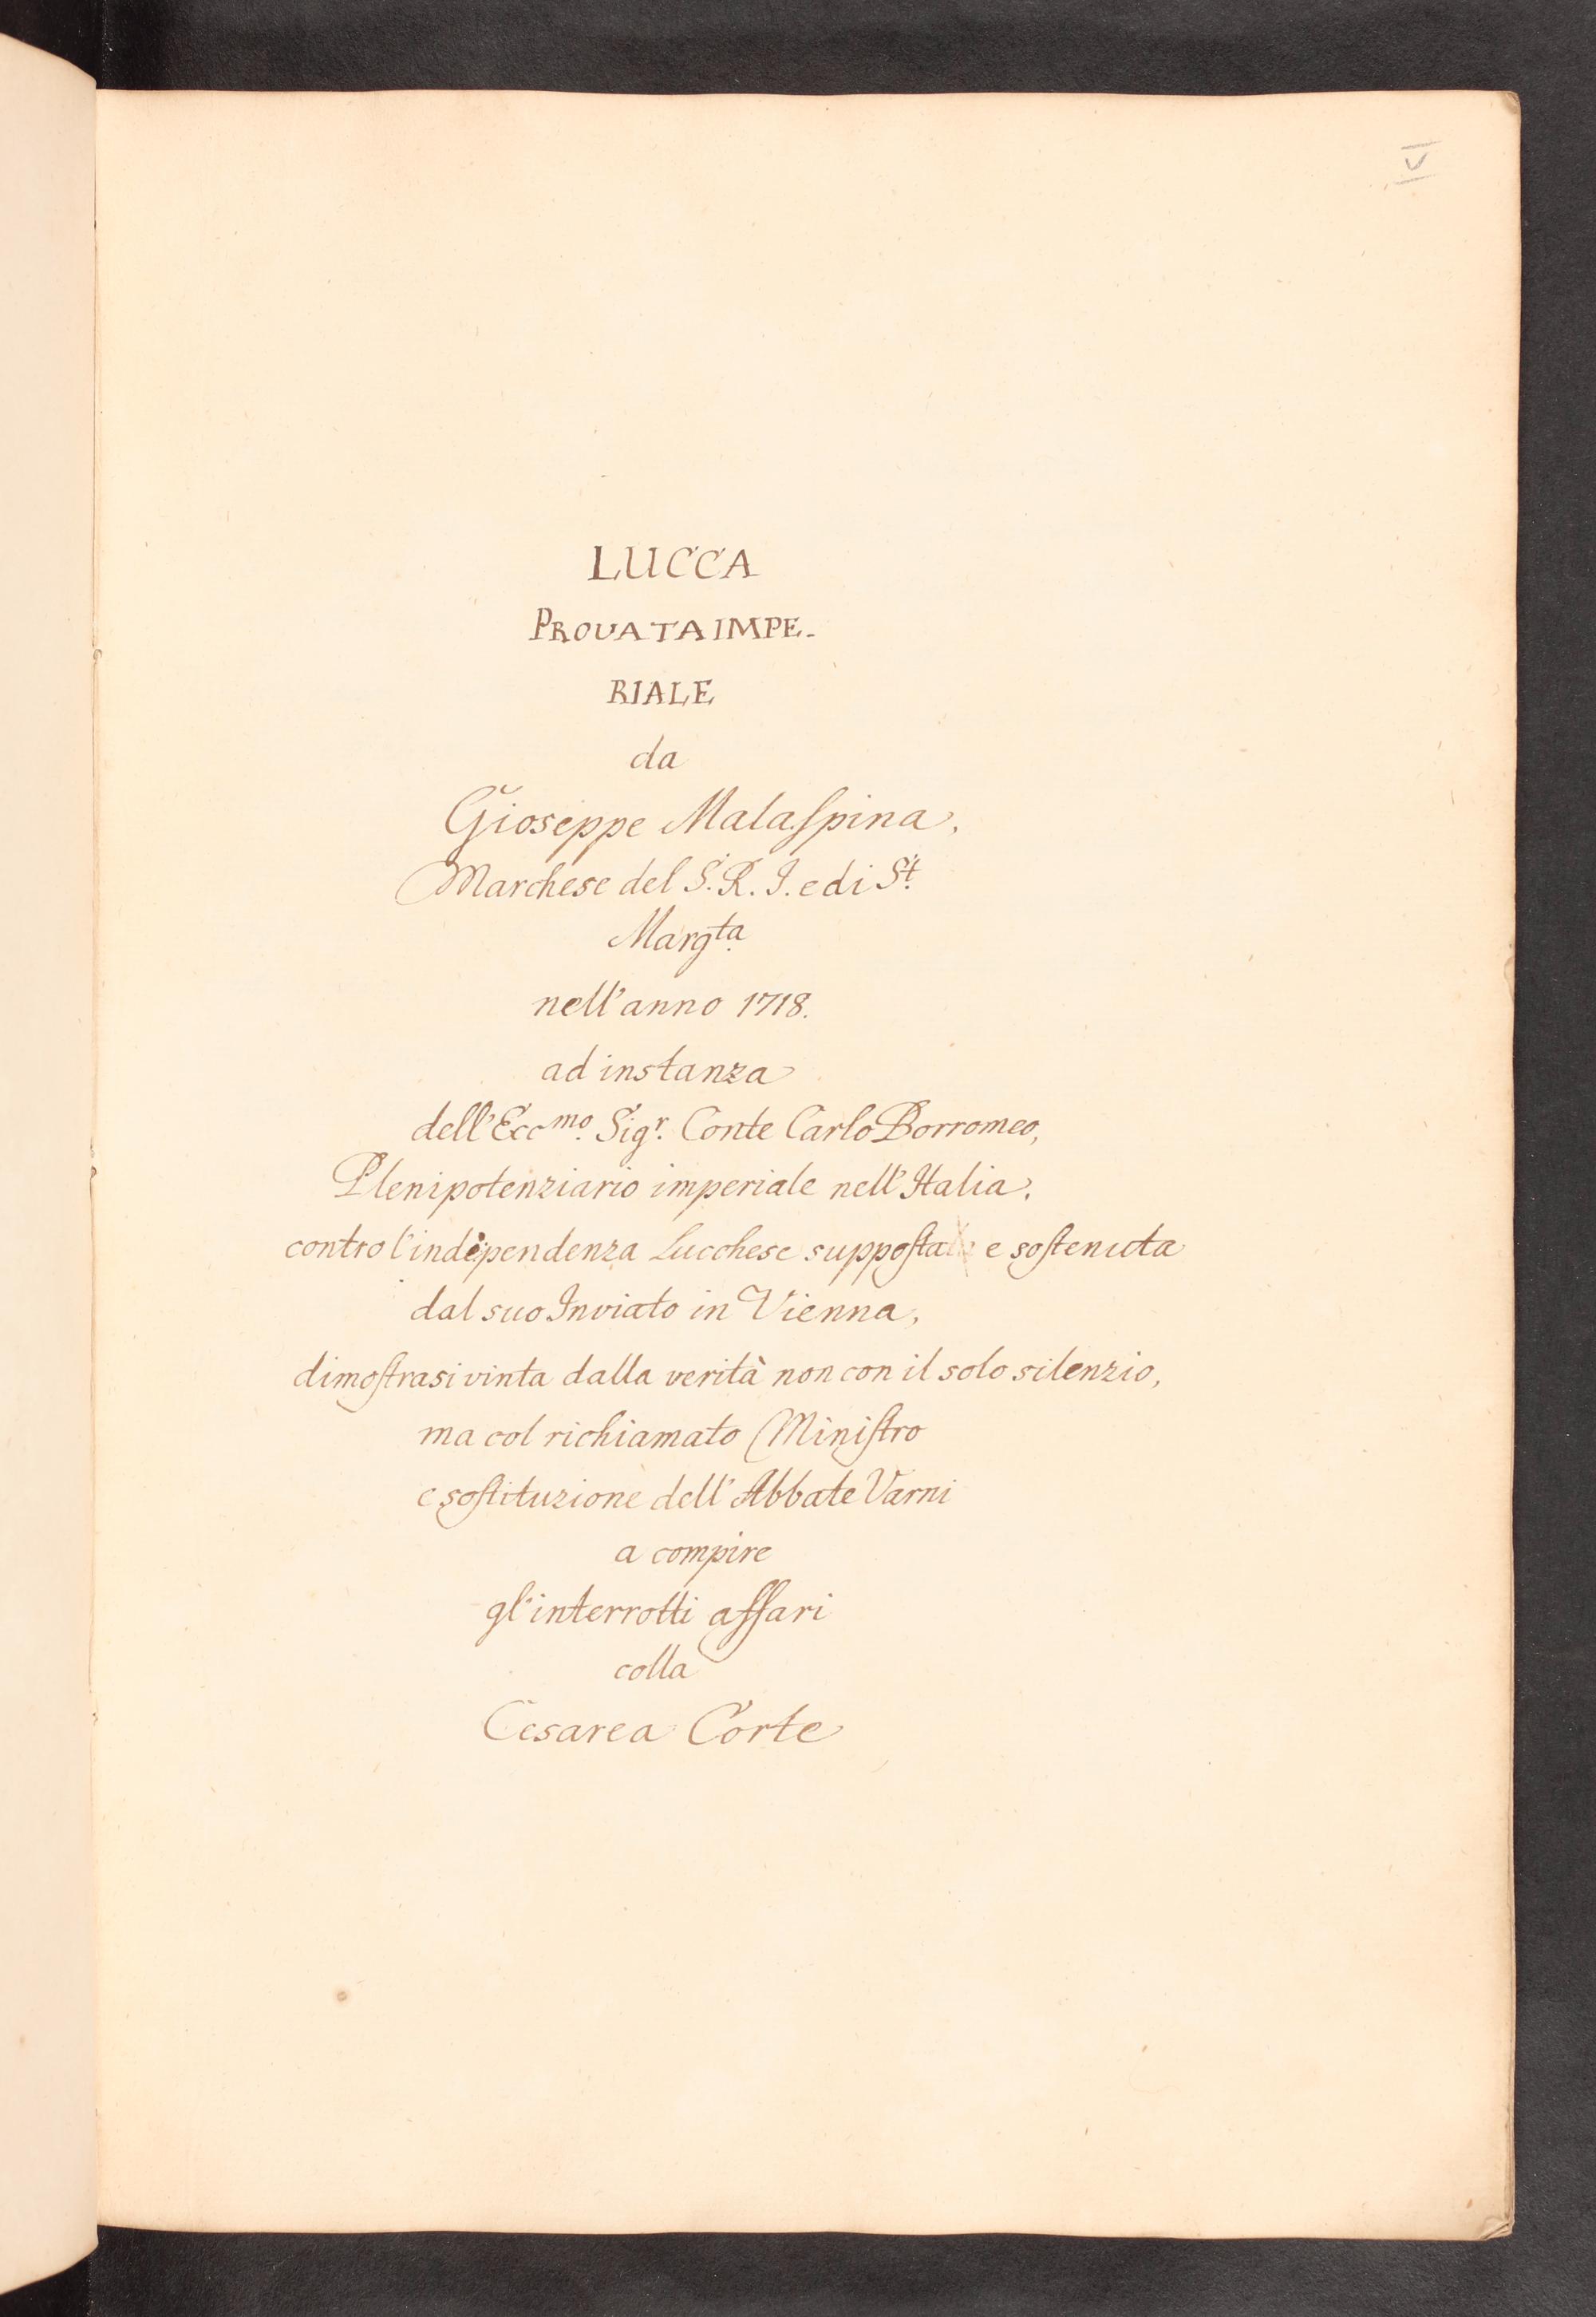 V
LUCCA
PROUATA IMPE-
RIALE
da
Gioseppe Malaspina,
Marchese del S. R. I. e di St.
Margta.
nell'anno 1718.
ad instanza
dell'Eccmo. Sigr. Conte Carlo Borromeo,
Plenipotenziario imperiale nell'Italia,
contro l'independenza Lucchese supposta e sostenuta
dal suo Inviato in Vienna,
dimostrasi vinta dalla verità non con il solo silenzio,
ma col richiamato Ministro
e sostituzione dell'Abbate Varni
a compire
gl'interrotti affari
colla
Cesarea Corte